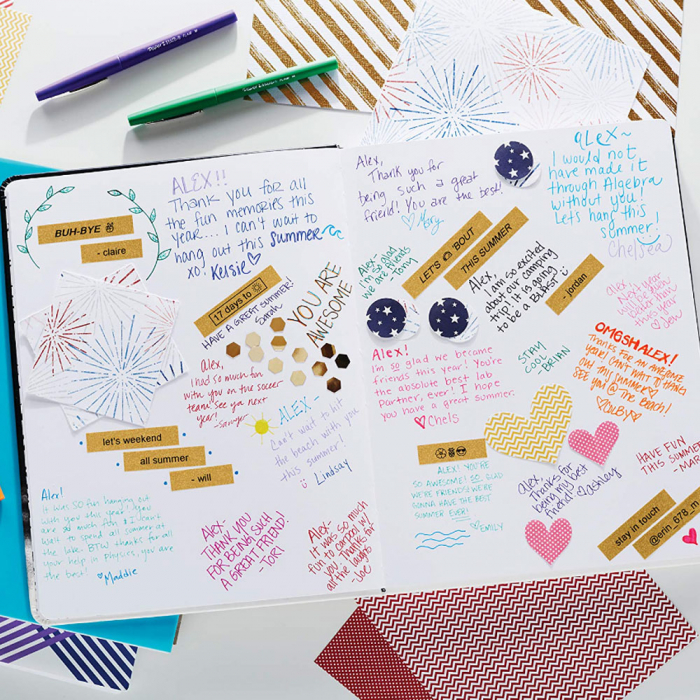 BUH-BYE
- claire
ALEX!!
Thank you for all
the fun memories this
year.... I can't wait to
hang out this summer
xo! Kelsie
17 days to
HAVE A GREAT SUMMER!
Sarah
YOU ARE
AWESOME
Alex,
I had so much fun
with you on the soccer
team! See you next
year!
-Sawyer
let's weekend
all summer
- will
ALEX -
Can't wait to hit
the beach with you
this summer!
Lindsay
Alex!
It was SO fun hanging out
with you this year! You
are so much fun & I can't
wait to spend all summer at
the lake. BTW thanks for all
your help in physics, you are
the best!
Maddie
Alex,
THANK YOU
FOR BEING SUCH
A GREAT FRIEND!
-TORI
Alex-
It was so much
fun to
you. Thanks for
all the laughs
-Joe
Alex,
Thank you for
being such a great
friend! You are the best!
Mary
ALEX~
I would not
have made it
through Algebra
without you!
Lets hang this
summer!
Chelsea
Alex-
I'm so glad
we are friends
-Tony
LET'S 'BOUT
THIS SUMMER
Alex,
I am so excited
about our camping
trip! It is going
to be a BLAST!
- jordan
Alex!
I'm so glad we became
friends this year! You're
the absolute best lab
partner, ever! I hope
you have a great summer.
Chels
STAY
COOL
-BRIAN
Next year
will be even
better than
this year
Jen
OMGSH ALEX!
THANKS FOR AN AWESOME
YEAR! CAN'T WAIT TO HANG
SEE YOU @ THE BEACH!
COLBY
ALEX! YOU'RE
SO AWESOME! SO GLAD
WE'RE FRIENDS! WE'RE
GONNA HAVE THE BEST
SUMMER EVER!
EMILY
Alex,
Thanks for
being my best
friend!
Ashley
HAVE FUN
THIS SUMMER
stay in touch
@erin_678_m